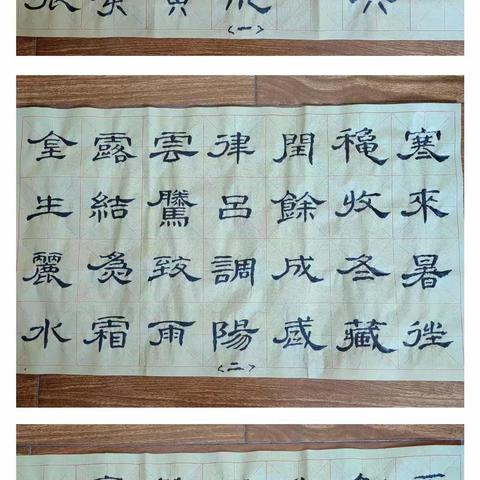 <一>
寒來暑徃
穐收冬藏
閏餘成歲
律呂調陽
雲騰致雨
露結為霜
金生麗水
<二>